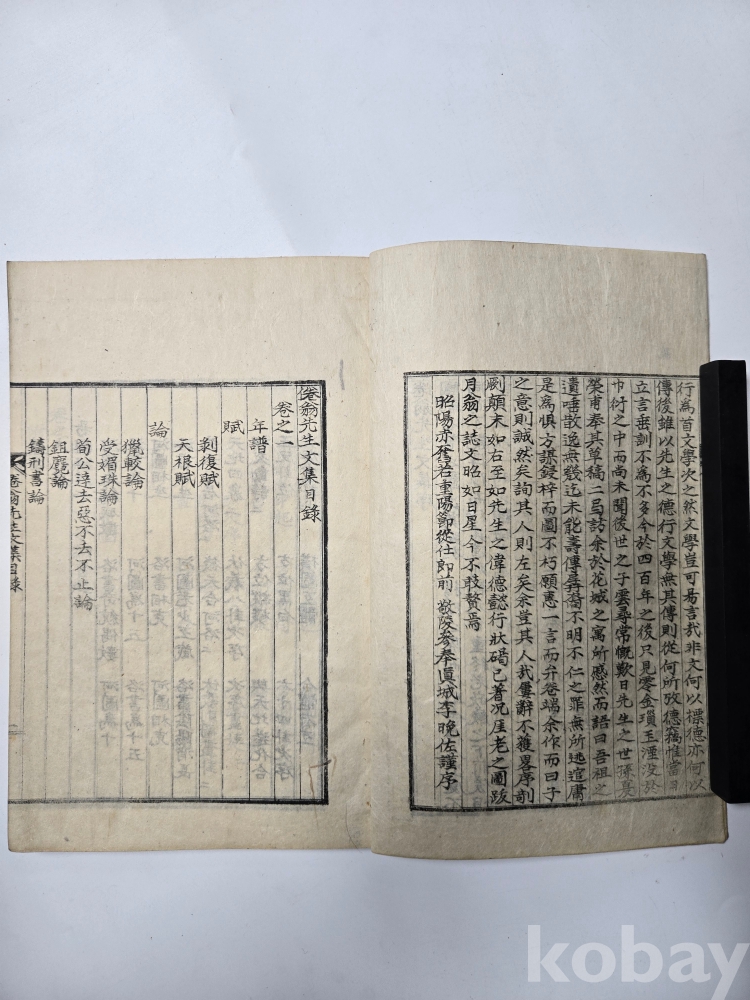 行爲首文學次之然文學豈可易言哉非文何以摽德亦何以
傳後雖以先生之德行文學無其傳則從何所攷德竊惟當日
立言垂訓不爲不多今於四百年之後只見零金瓊玉湮没於
巾衍之中而尚未聞後世之子雲尋常慨歎日先生之世孫
甫奉其草稿二弓訪余於花城之寓所慼然而語曰吾祖之
遺唾散逸無幾迄未能壽傳孱裔不明不仁之罪無所逃逭庸
是爲惧方謀鋟梓而圖不朽願惠一言而弁卷端余作而曰子
之意則誠然矣詢其人則左矣余豈其人哉屢辭不獲畧序剞
劂顛末如右至如先生之偉德懿行狀碣已著况厓老之圖跋
月翁之誌文昭如日星今不敢贅焉
昭陽赤奮若重陽節從仕郎前 敬陵參奉眞城李晩佐謹序
倦翁先生文集目錄
卷之一
年譜
賦
剝復賦
天根賦
論
獵較論
受媚珠論
荀公達去惡不去不止論
鉏麑論
鑄刑書論
倦翁先生文集目錄
kobay